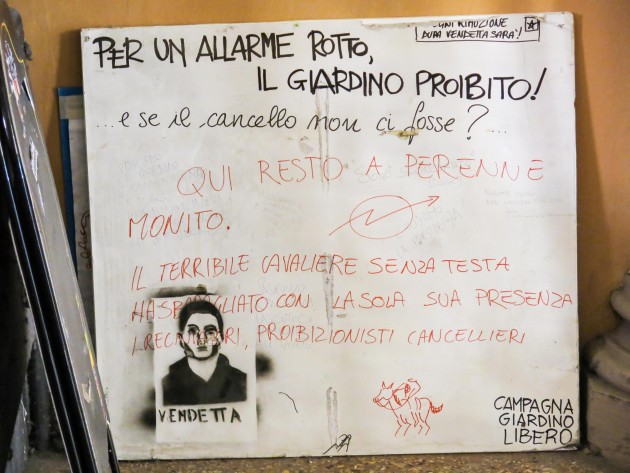 OGNI RIMOZIONE
DURA VENDETTA SARA'!
PER UN ALLARME ROTTO,
IL GIARDINO PROIBITO!
...e se il cancello non ci fosse?...
QUI RESTO A PERENNE
MONITO.
IL TERRIBILE CAVALIERE SENZA TESTA
HA SBARAGLIATO CON LA SOLA SUA PRESENZA
PROIBIZIONISTI CANCELLIERI
VENDETTA
CAMPAGNA
GIARDINO
LIBERO